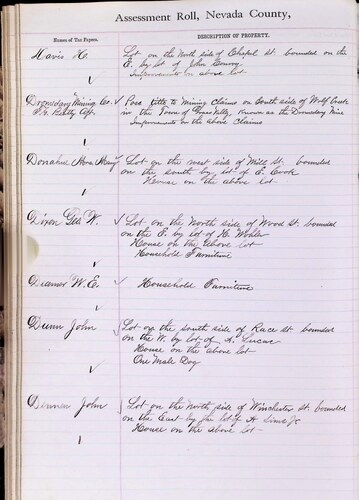 Assessment Roll, Nevada County,
Names of Tax Payers.
DESCRIPTION OF PROPERTY.
Davis H.
Lot on the North side of Chapel St. bounded on the
E. by lot of John
Improvements on above lot
Doomsday Mining Co.
Poss title to Mining Claims on South side of Wolf Creek
in the Town of Grass Valley, known as the Doomsday Mine
Improvements on the above Claims
Donahue
Lot on the west side of Mill St. bounded
on the south by lot of E. Cook
House on the above lot
Dixon Geo W.
Lot on the North side of Wood St. bounded
on the E. by lot of H.
House on the above lot
Household Furniture
Deamer W. E.
Household Furniture
Dunn John
Lot on the south side of Race St. bounded
on the W. by lot of A.
House on the above lot
One Male Dog
John
Lot on the North side of Winchester St. bounded
on the East by the lot of H Sims Jr
House on the above lot